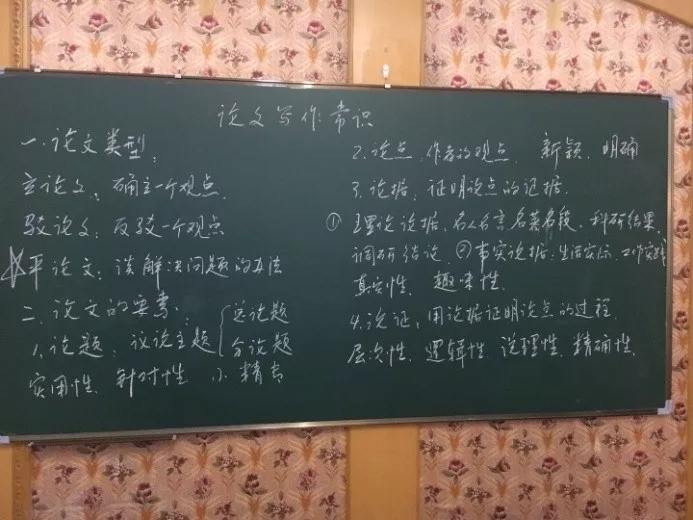 论文写作常识
一、论文类型:
立论文:确立一个观点
驳论文:反驳一个观点
☆平论文:谈解决问题的办法
二、论文的要素:
1、论题:议论主题{总论题
分论题
实用性、针对性 小 精 专
2、论点:作者的观点 新颖、明确
3、论据:证明论点的证据
①理论论据:名人名言 名著名段、科研结果、
调研结论 ②事实论据:生活实际、工作实践
真实性、趣味性
4、论证:用论据证明论点的过程
层次性、逻辑性、说理性、精确性